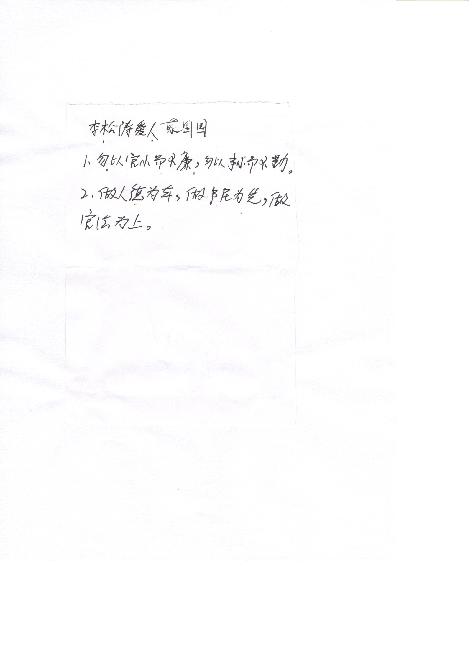 李松涛爱人 蔡团团
1、勿以官小而不廉，勿以事小而不勤。
2、做人德为本，做事民为先，做
官法为上。